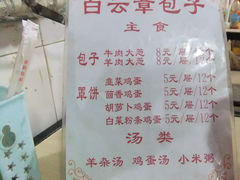 白云章包子
主食
包子 牛肉大葱 8元/屉/12个
羊肉大葱 8元/屉/12个
罩饼 韭菜鸡蛋 5元/屉/12个
茴香鸡蛋 5元/屉/12个
胡萝卜鸡蛋 5元/屉/12个
白菜粉条鸡蛋 5元/屉/12个
汤类
羊杂汤 鸡蛋汤 小米粥